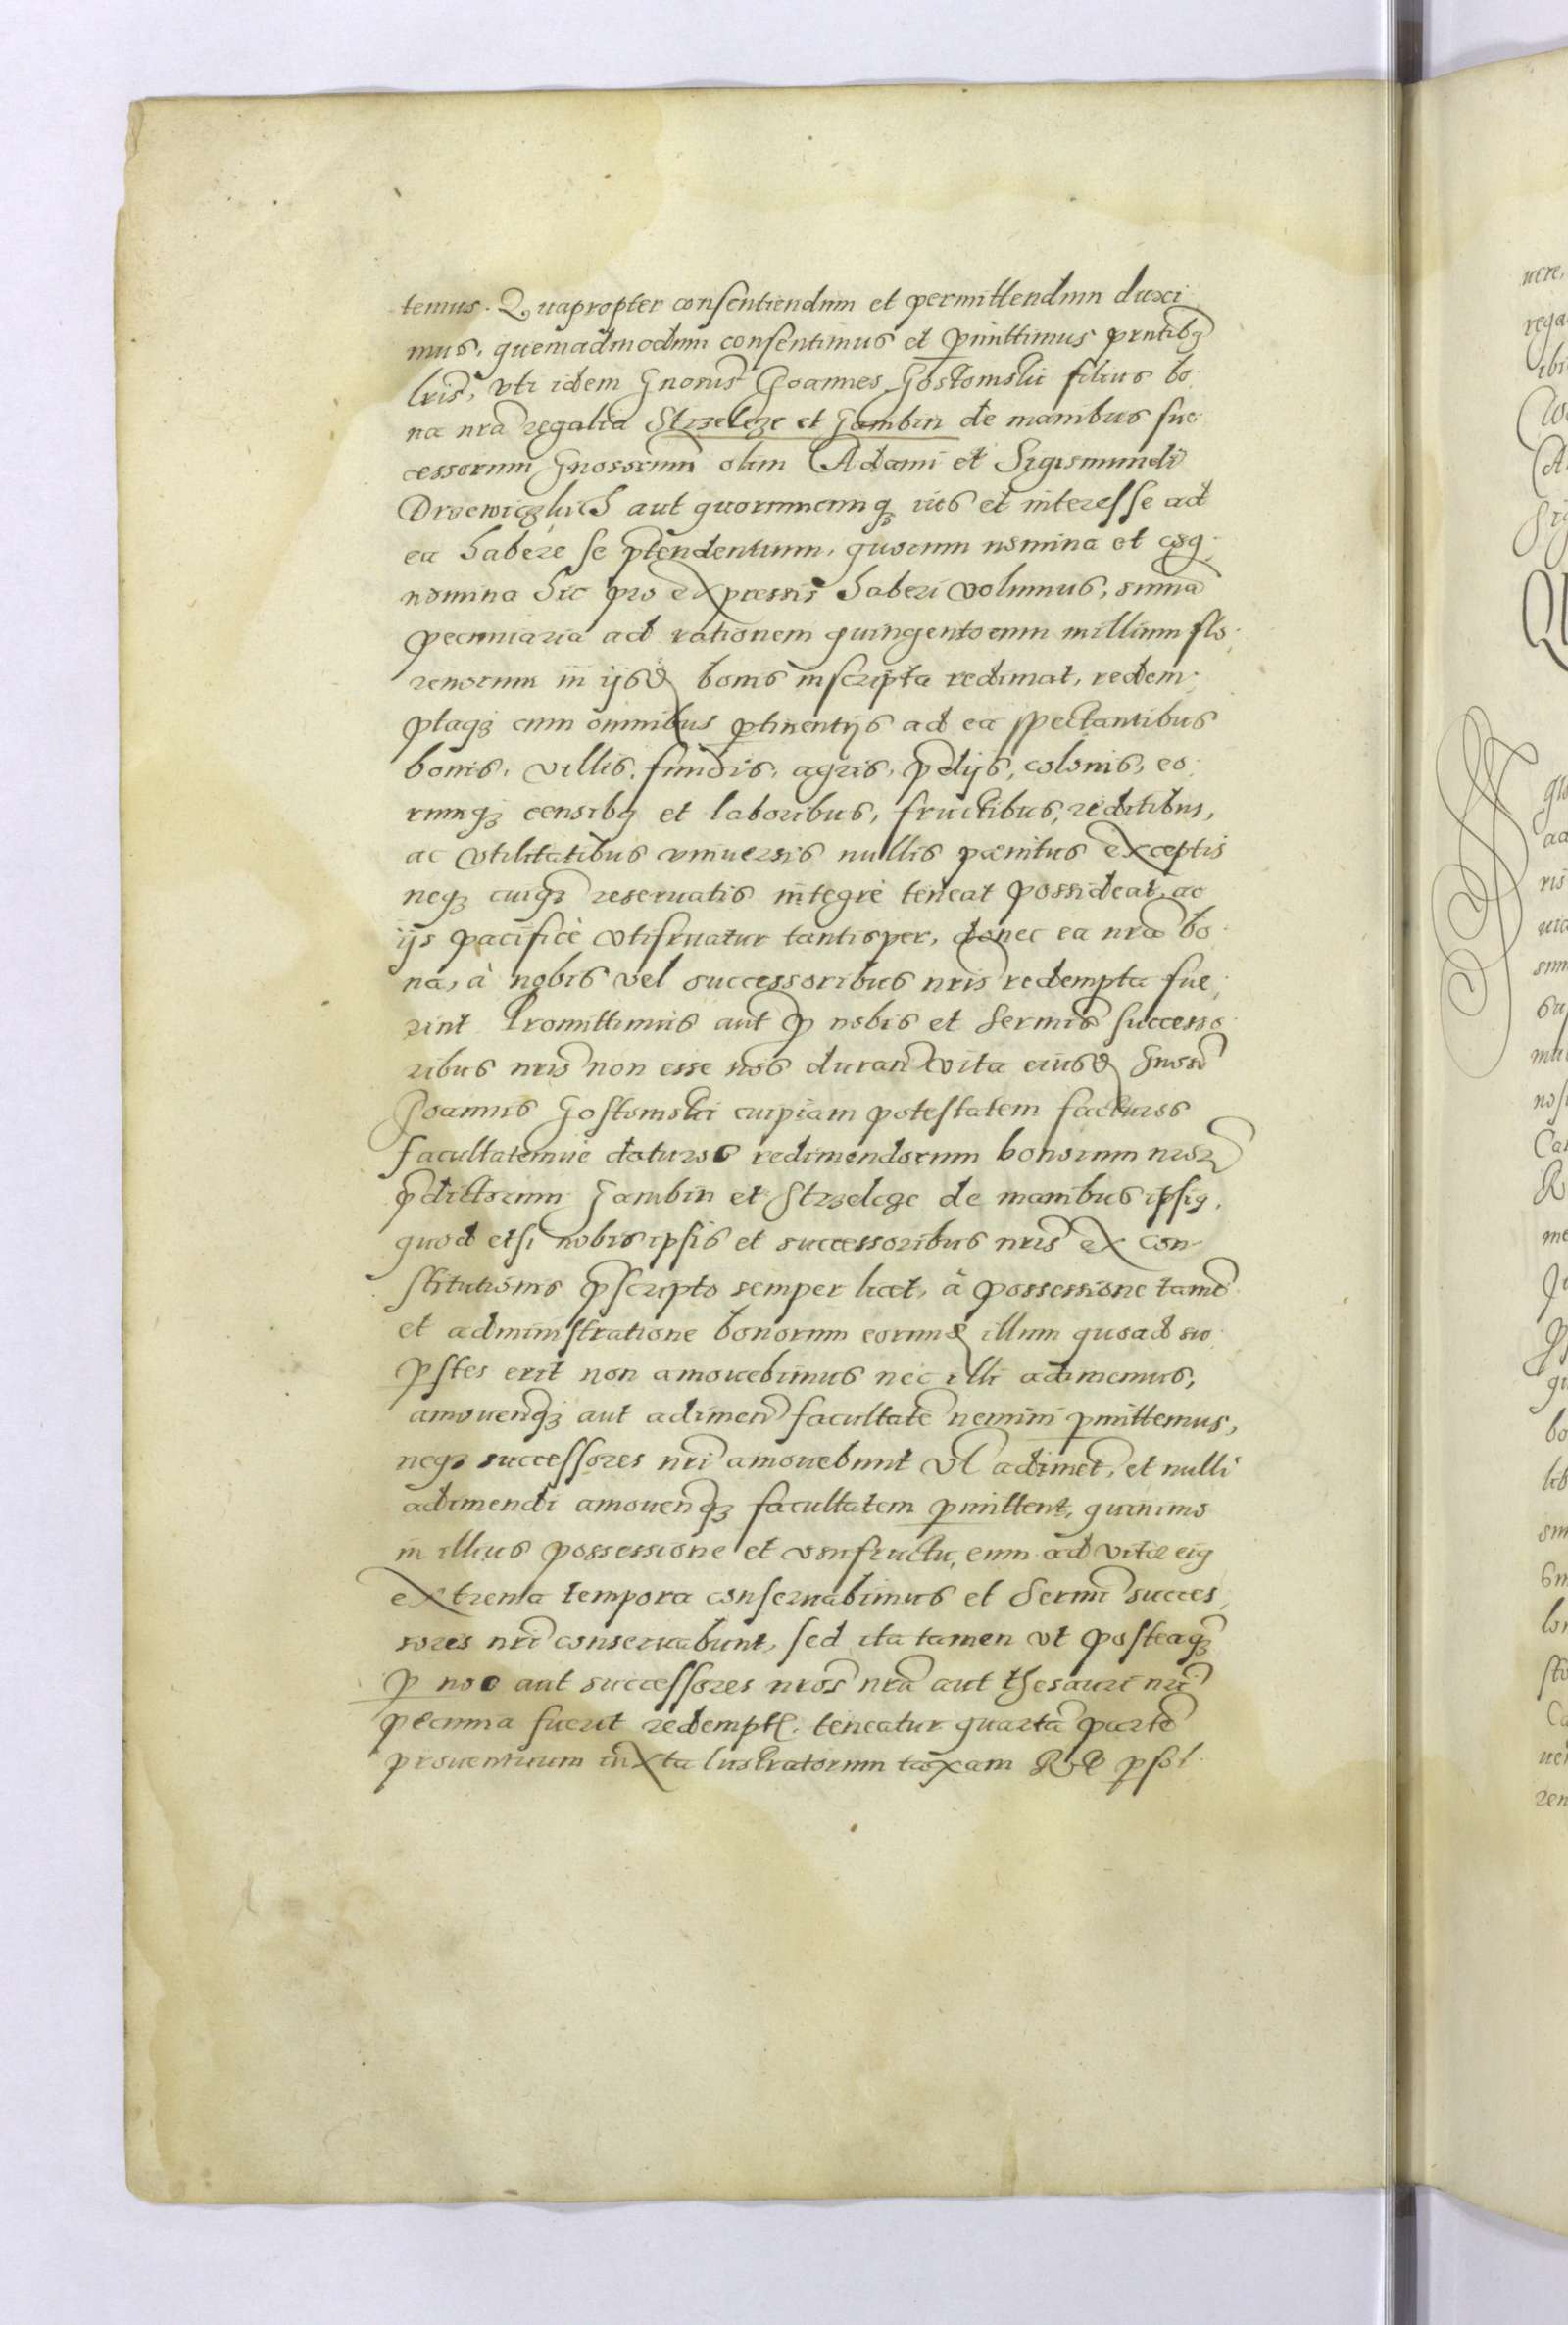 temus. Quapropter consentiendum et permittendum duxi
mus, quemadmodum consentimus et pmittimus pntibq
lris, vti idem Gnosus Joannes Gostomski filius bo
na nra regalia Strzelcze et Gambin de manibus suc
cessorum Gnosorum olim Adami et Sigismundi
Drzewiczkich aut quorumcunq ius et interesse ad
ea habere se ptendentium, quorum nomina et cog
nomina hic pro expressis haberi volumus, summa
pecuniaria ad rationem quingentorum millium flo
renorum in ijsd bonis inscripta redimat, redem
ptaq cum omnibus ptinentijs ad ea spectantibus
bonis, villis, fundis, agris, pdijs, colonis, eo
rumq censibq et laboribus, fructibus, reditibus,
ac vtilitatibus vniuersis nullis pænitus exceptis
neq cuiq reseruatis integrè teneat possideat, ac
ijs pacificè vtifruatur tantisper, donec ea nra bo
na, à nobis vel successoribus nris redempta fue
rint Promittimus aut p nobis et Sermis successo
ribus nris non esse nos duran vita eiusd Gnosi
Joannis Gostomski cuipiam potestatem facturos
facultatemue daturos redimendorum bonorum nror
pdictorum Gambin et Strzelcze de manibus ipsiq,
quod etsi nobis ipsis et successoribus nris ex con
stitutionis pscripto semper licet, à possessione tame
et administratione bonorum eorund illum quoad su
pstes erit non amouebimus nec illi adimemus,
amouenq aut adimen facultate nemini pmittemus,
neq successores nri amouebunt vl adimet, et nulli
adimendi amouenq facultatem pmittent, quinimo
in illius possessione et vsufructu, eum ad vitæ eiq
extrema tempora conseruabimus et Sermi succes
sores nri conseruabunt, sed ita tamen vt posteaq
p nos aut successores nros nra aut thesauri nri
pecunia fuerit redempt. teneatur quarta parte
prouentuum iuxta lustratorum taxam psol